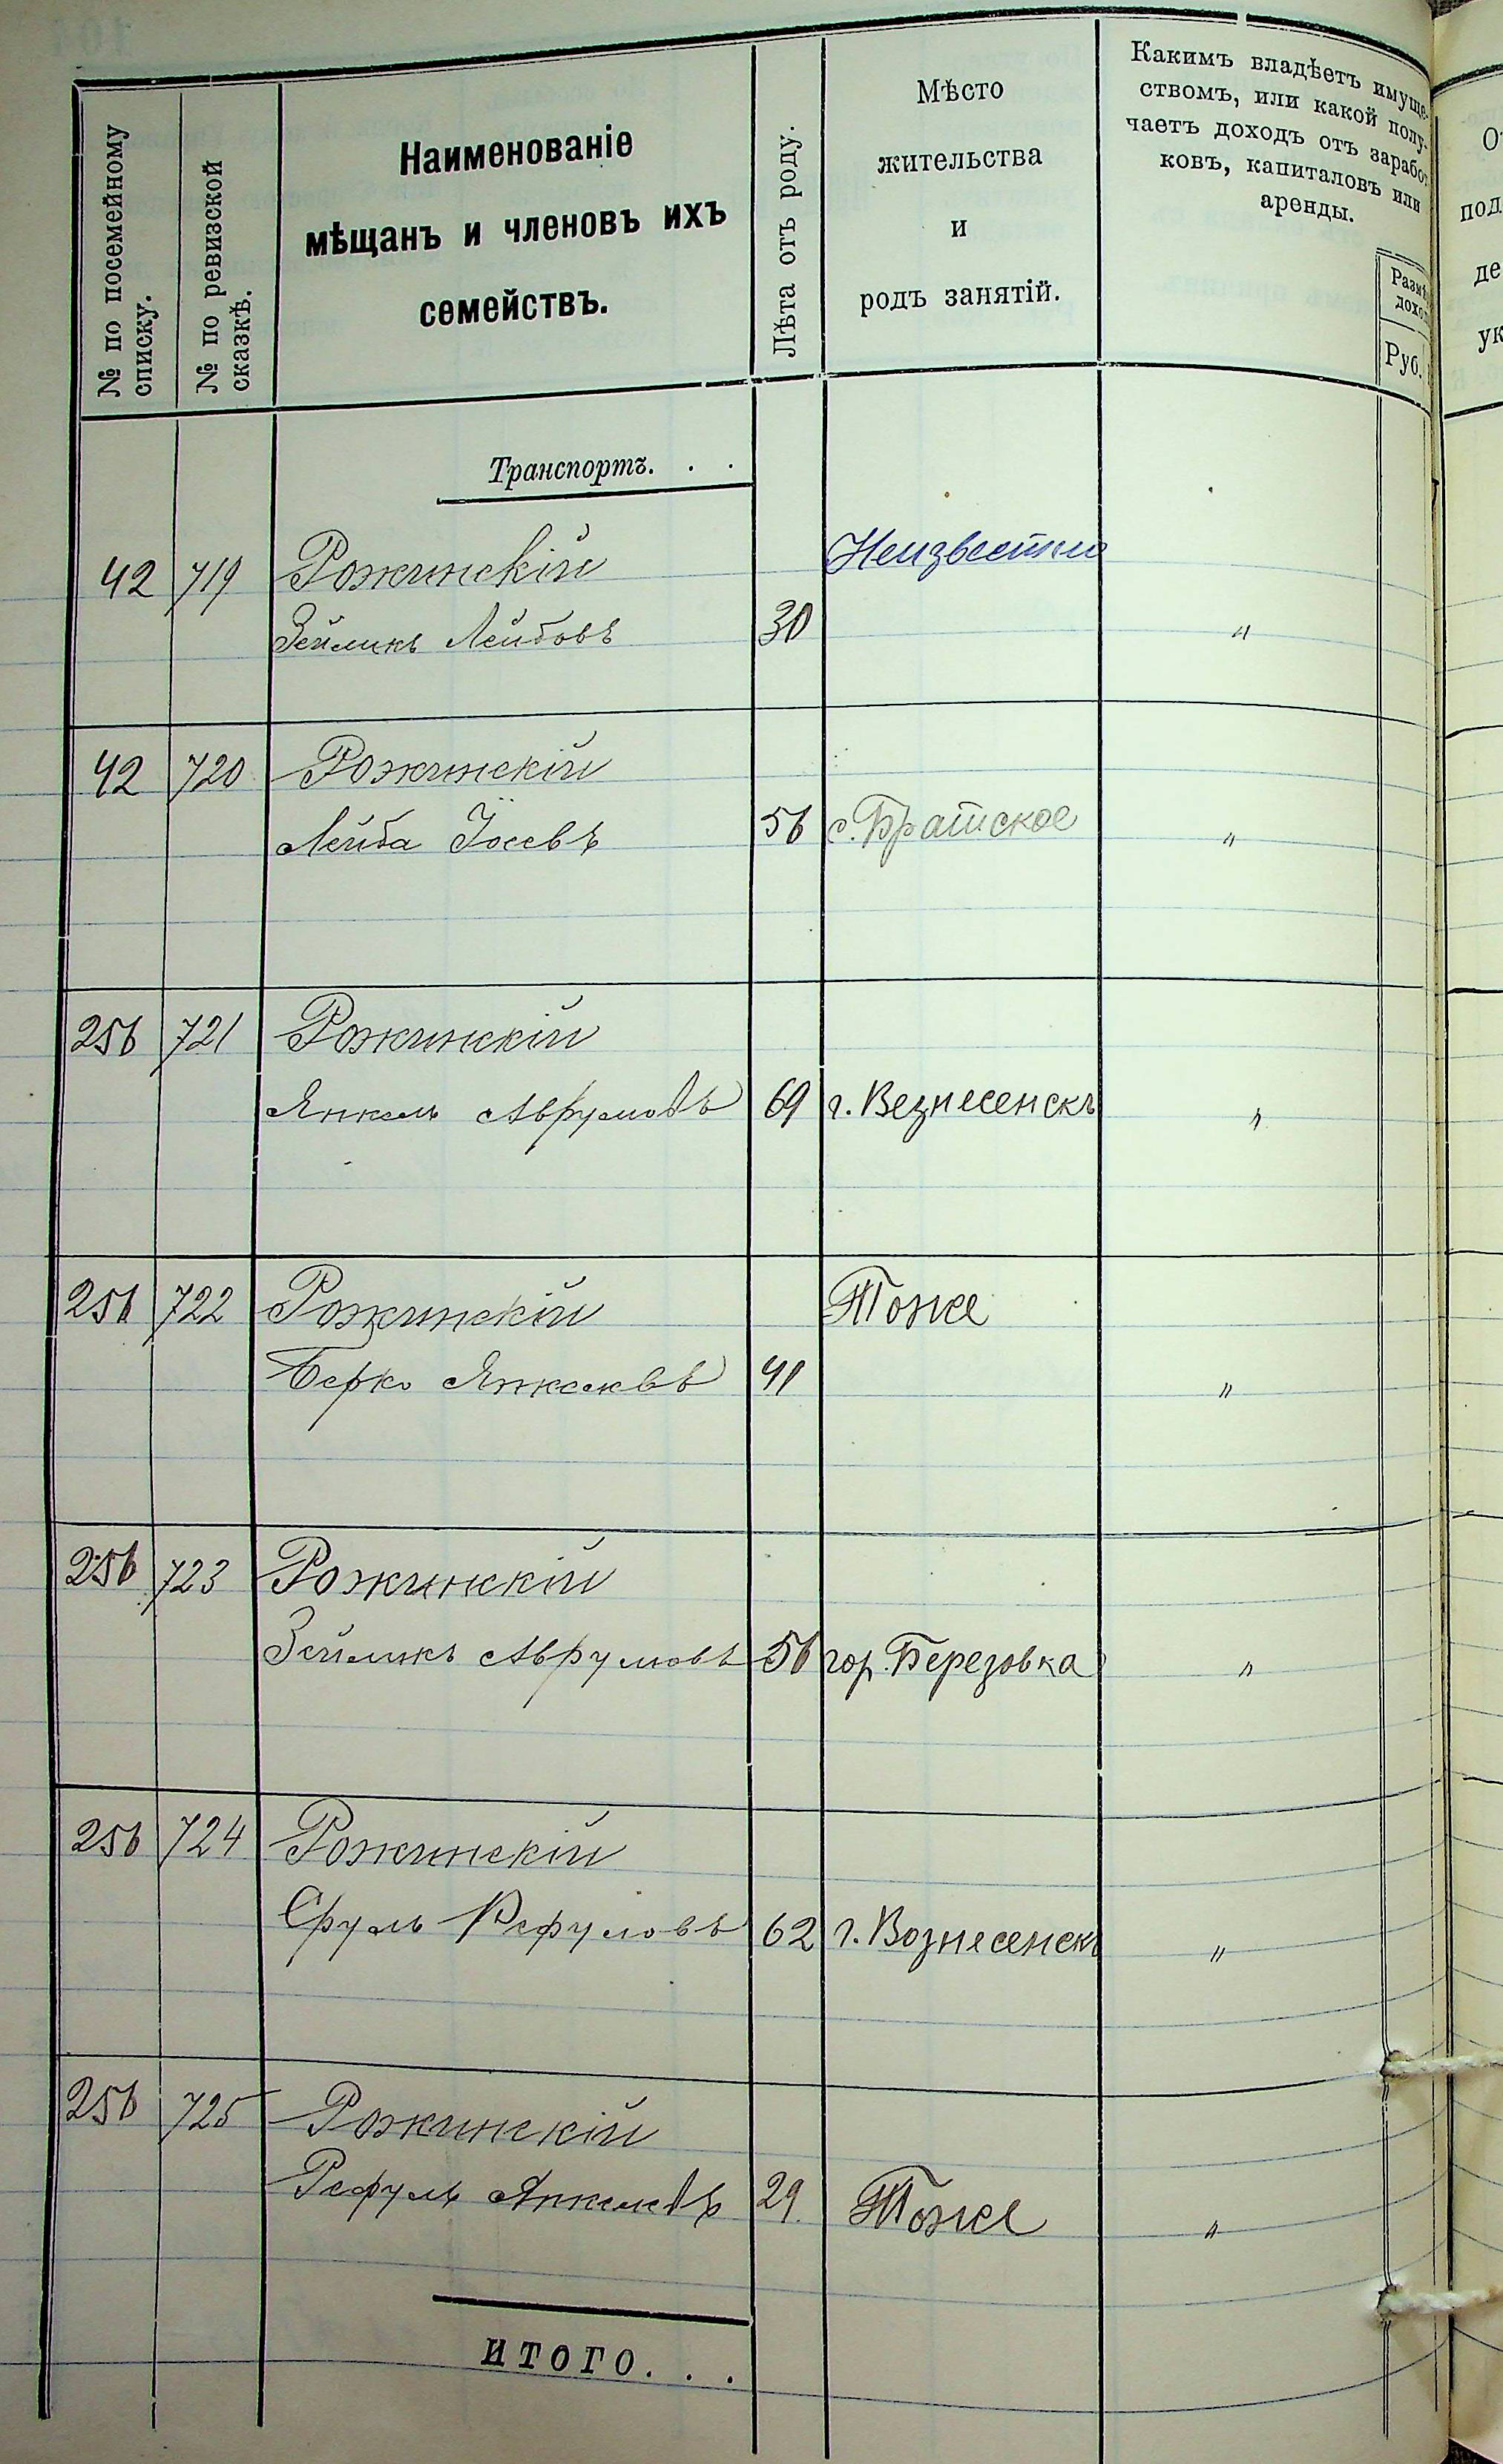 № по посемейному
списку.
№ по ревизской
сказкѣ.
Наименованіе
мѣщанъ и членовъ ихъ
семействъ.
Лѣта отъ роду.
Мѣсто
жительства
и
родъ занятій.
Какимъ владѣетъ имуще-
ствомъ, или какой полу-
чаетъ доходъ отъ заработ
ковъ, капиталовъ или
аренды.
Размѣ
доход
Руб.
О
под
де
ук
Транспортъ. . .
42 719 Рожинскій Неизвестно
Зейликъ Лейбовъ 30 "
42 720 Рожинскій
Лейба Іосевъ 56 с. Братское "
256 721 Рожинскій
Янкель Аврумовъ 69 г. Везнесенскъ "
256 722 Рожинскій Тоже
Берко Янкелевъ 41 "
256 723 Рожинскій
Зейликъ Аврумовъ 56 гор. Березовка "
256 724 Рожинскій
Сруль Рефуловъ 62 г. Вознесенскъ "
256 725 Рожинскій
Рефуль Янкелевъ 29 Тоже "
ИТОГО. . .